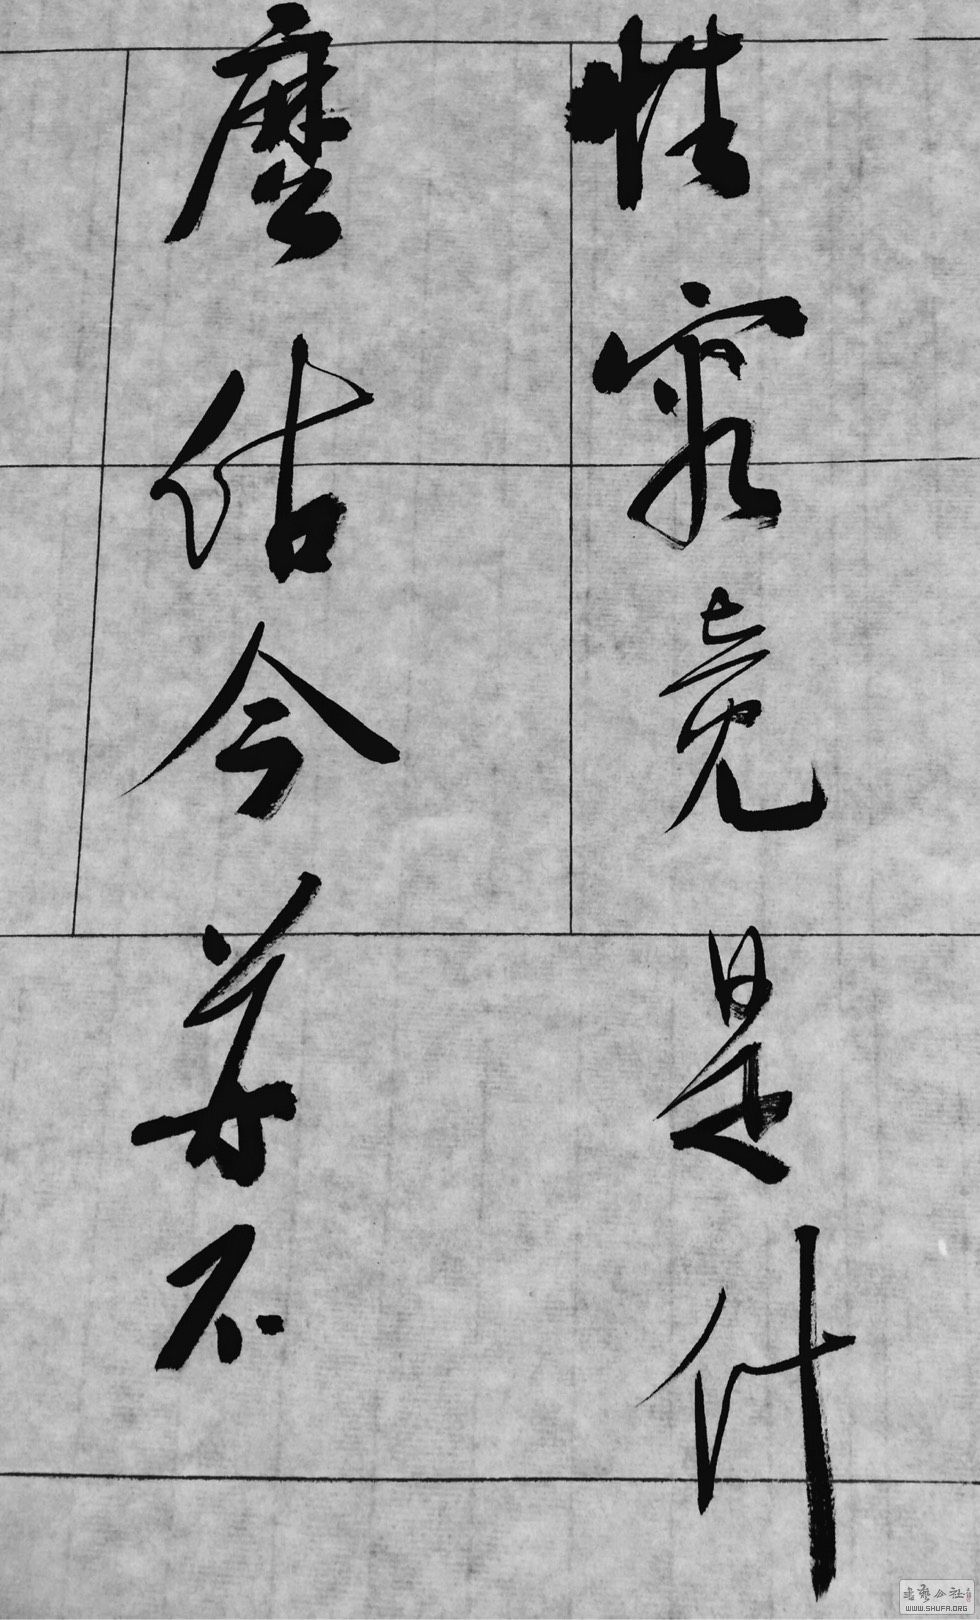 性究竟是什
麼估今若不
書藝公社
WWW.SHUFA.ORG